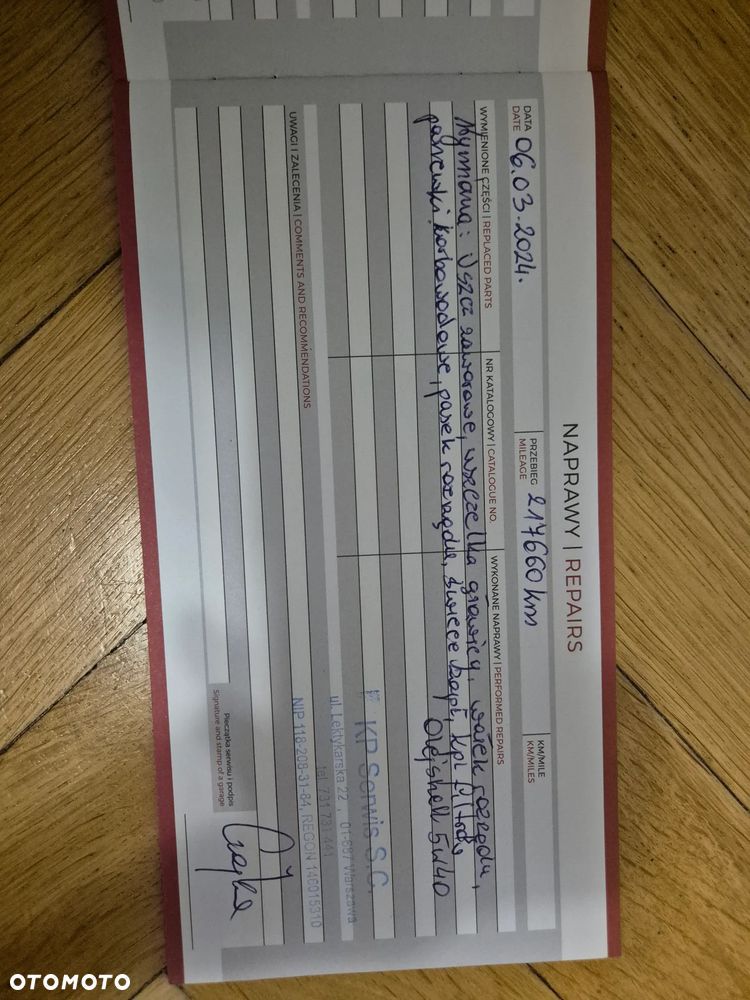 NAPRAWY | REPAIRS
DATA
DATE
06.03.2024.
PRZEBIEG
MILEAGE
217660 km
KM/MILE
KM/MILES
WYMIENIONE CZĘŚCI | REPLACED PARTS
NR KATALOGOWY | CATALOGUE NO.
WYKONANE NAPRAWY | PERFORMED REPAIRS
Wymiana: Uszcz zaworowe, uszczelka głowicy, wałek rozrządu,
panewki korbowodowe, pasek rozrządu, świece kpl, kpl filtrów
Olej shell 5W40
KP Serwis S.C.
ul. Lektykarska 22 , 01-687 Warszawa
tel. 731 731 441
NIP 118-208-31-84, REGON 146015310
UWAGI I ZALECENIA | COMMENTS AND RECOMMENDATIONS
Pieczątka serwisu i podpis
Signature and stamp of a garage
OTOMOTO